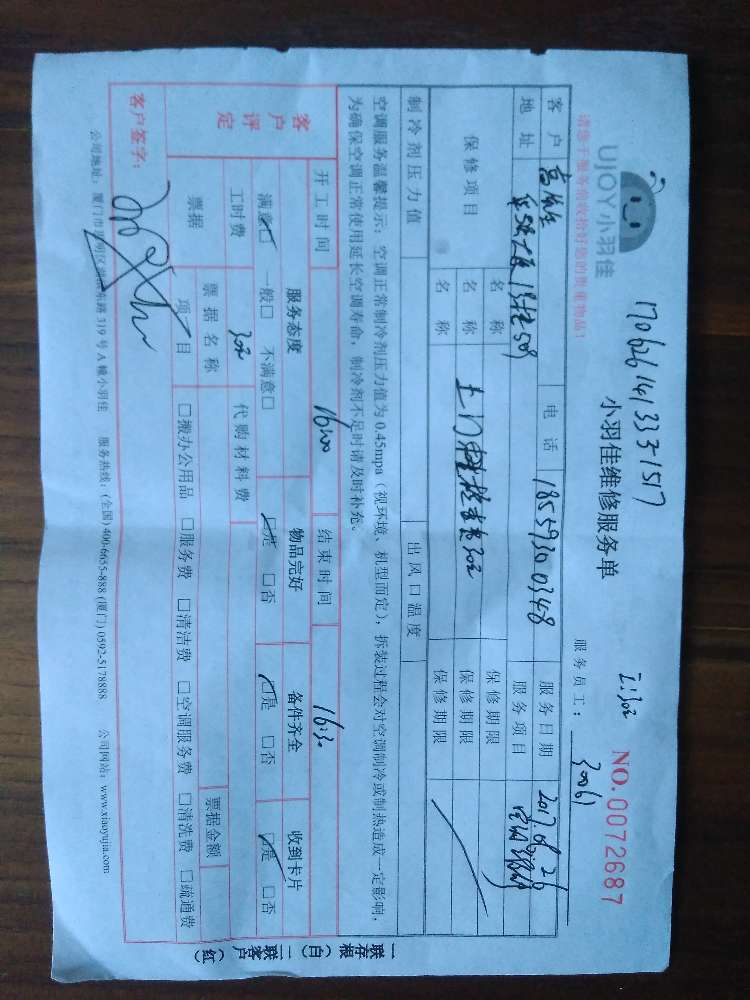 UJOY小羽佳
请您于服务前收拾好您的贵重物品!
小羽佳维修服务单
NO.0072687
服务员工: 30061
客户 电话 18559300348 服务日期
地址 服务项目
保修项目 名称 保修期限
名称 保修期限
名称 保修期限
制冷剂压力值 出风口温度
空调服务温馨提示:空调正常制冷剂压力值为0.45mpa(视环境、机型而定),拆装过程会对空调制冷或制热造成一定影响,
为确保空调正常使用延长空调寿命,制冷剂不足时请及时补充。
开工时间 16:00 结束时间 16:30
客户评定 服务态度 物品完好 备件齐全 收到卡片
满意□ 一般□ 不满意□ □是 □否 □是 □否 □是 □否
工时费 30元 代购材料费
票据 票据名称 票据金额
项目 □搬办公用品 □服务费 □清洁费 □空调服务费 □清洗费 □疏通费
客户签字:
一联存根(白) 二联客户(红)
服务热线:(全国)400-6655-888 (厦门) 0592-5178888 公司网站:www.xiaoyujia.com